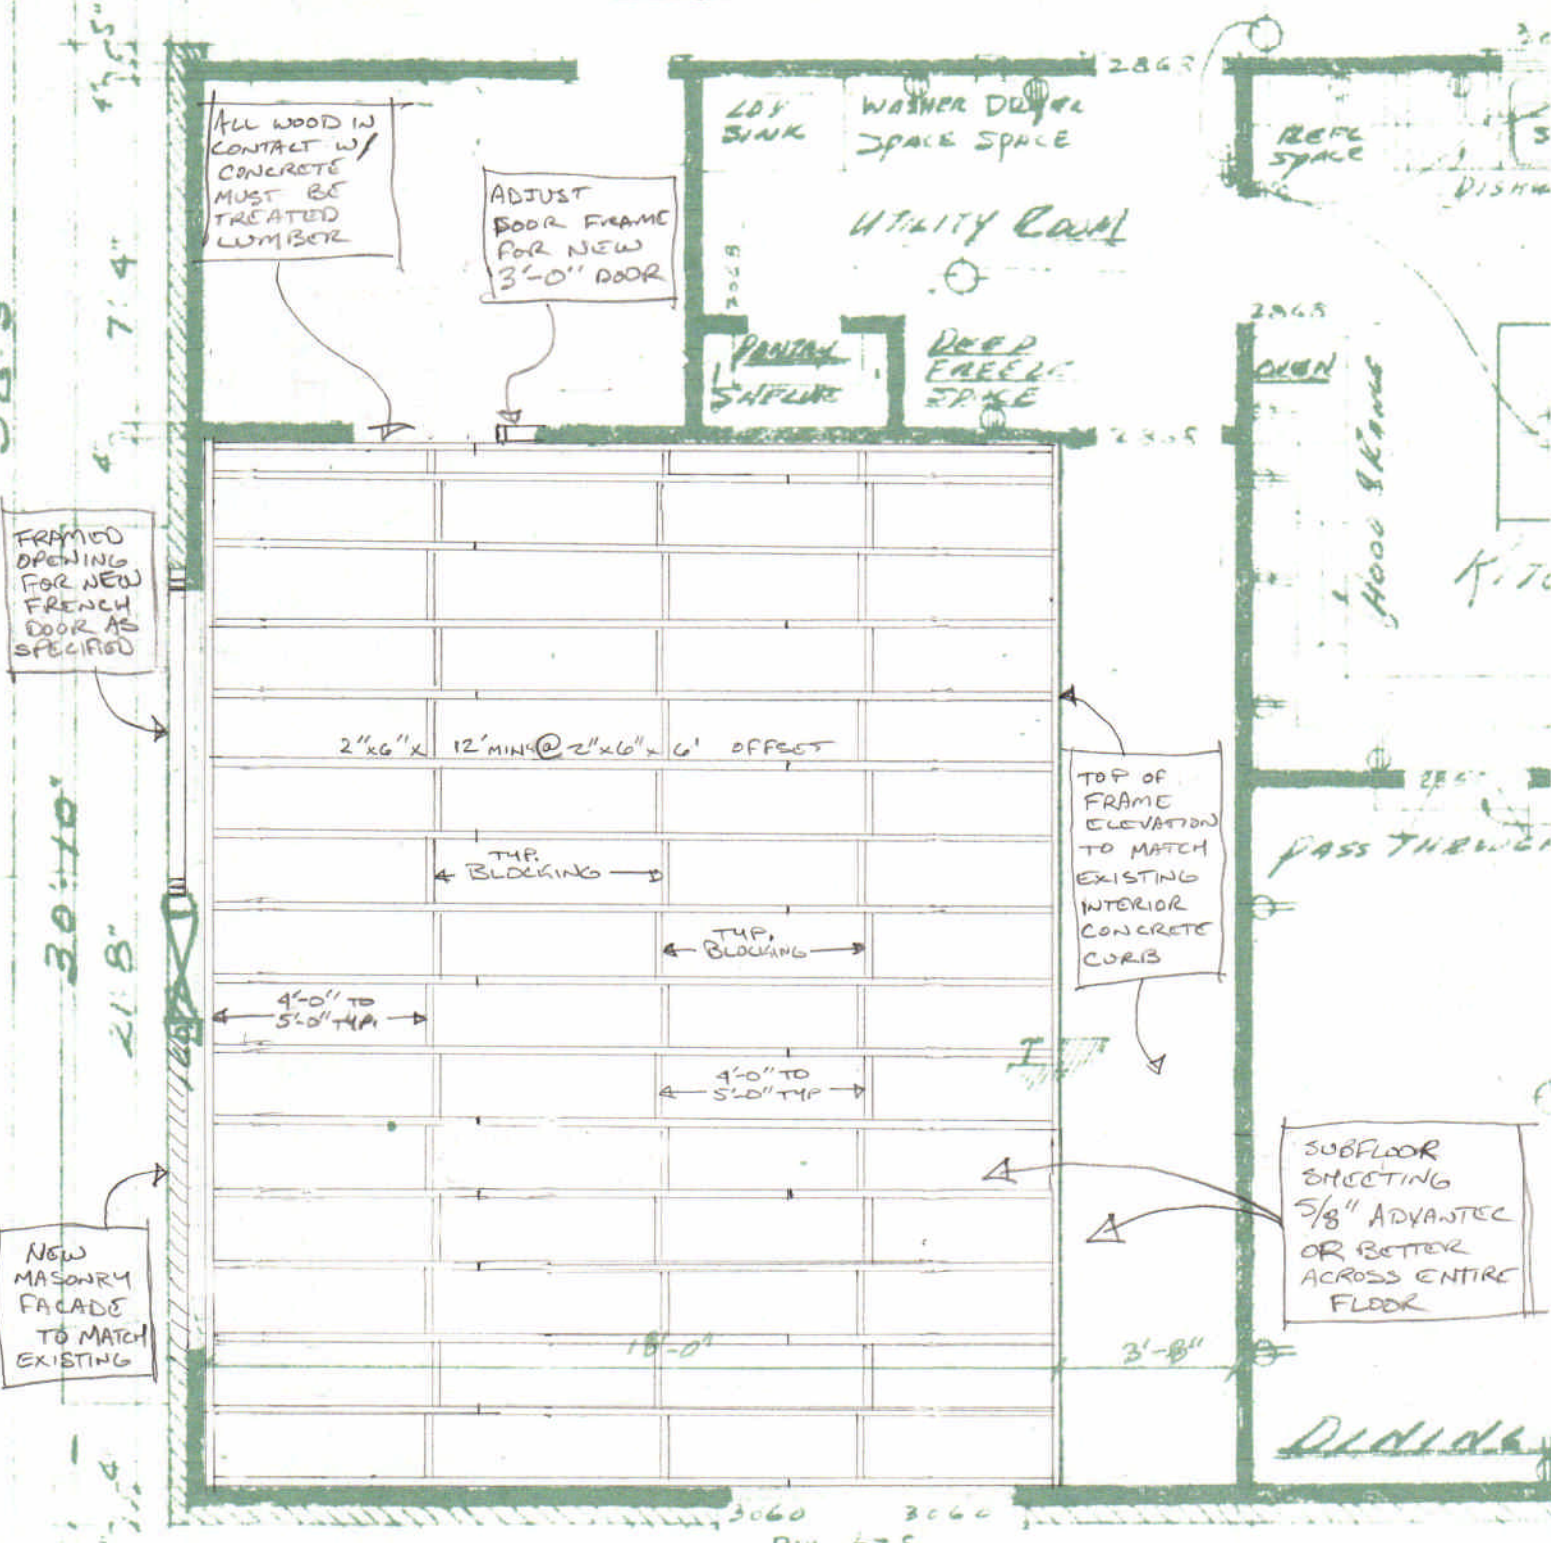 ALL WOOD IN
CONTACT W/
CONCRETE
MUST BE
TREATED
LUMBER
ADJUST
DOOR FRAME
FOR NEW
3'-0" DOOR
LDY
SINK
WASHER DRYER
SPACE SPACE
2868
UTILITY ROOM
3068
PANTRY
SHELVE
DEEP
FREEZE
SPACE
REFG
SPACE
DISHW
2868
OVEN
HOOD & RANGE
KITC
7'4"
4"
FRAMED
OPENING
FOR NEW
FRENCH
DOOR AS
SPECIFIED
2"x6"x 12' MIN. @ 2"x6"x 6' OFFSET
TYP.
BLOCKING
TYP.
BLOCKING
4'-0" TO
5'-0" TYP.
4'-0" TO
5'-0" TYP
TOP OF
FRAME
ELEVATION
TO MATCH
EXISTING
INTERIOR
CONCRETE
CURB
PASS THROUGH
30'-10"
21'8"
I
SUBFLOOR
SHEETING
5/8" ADVANTEC
OR BETTER
ACROSS ENTIRE
FLOOR
NEW
MASONRY
FACADE
TO MATCH
EXISTING
18'-0"
3'-8"
DINING
4
3060
3060